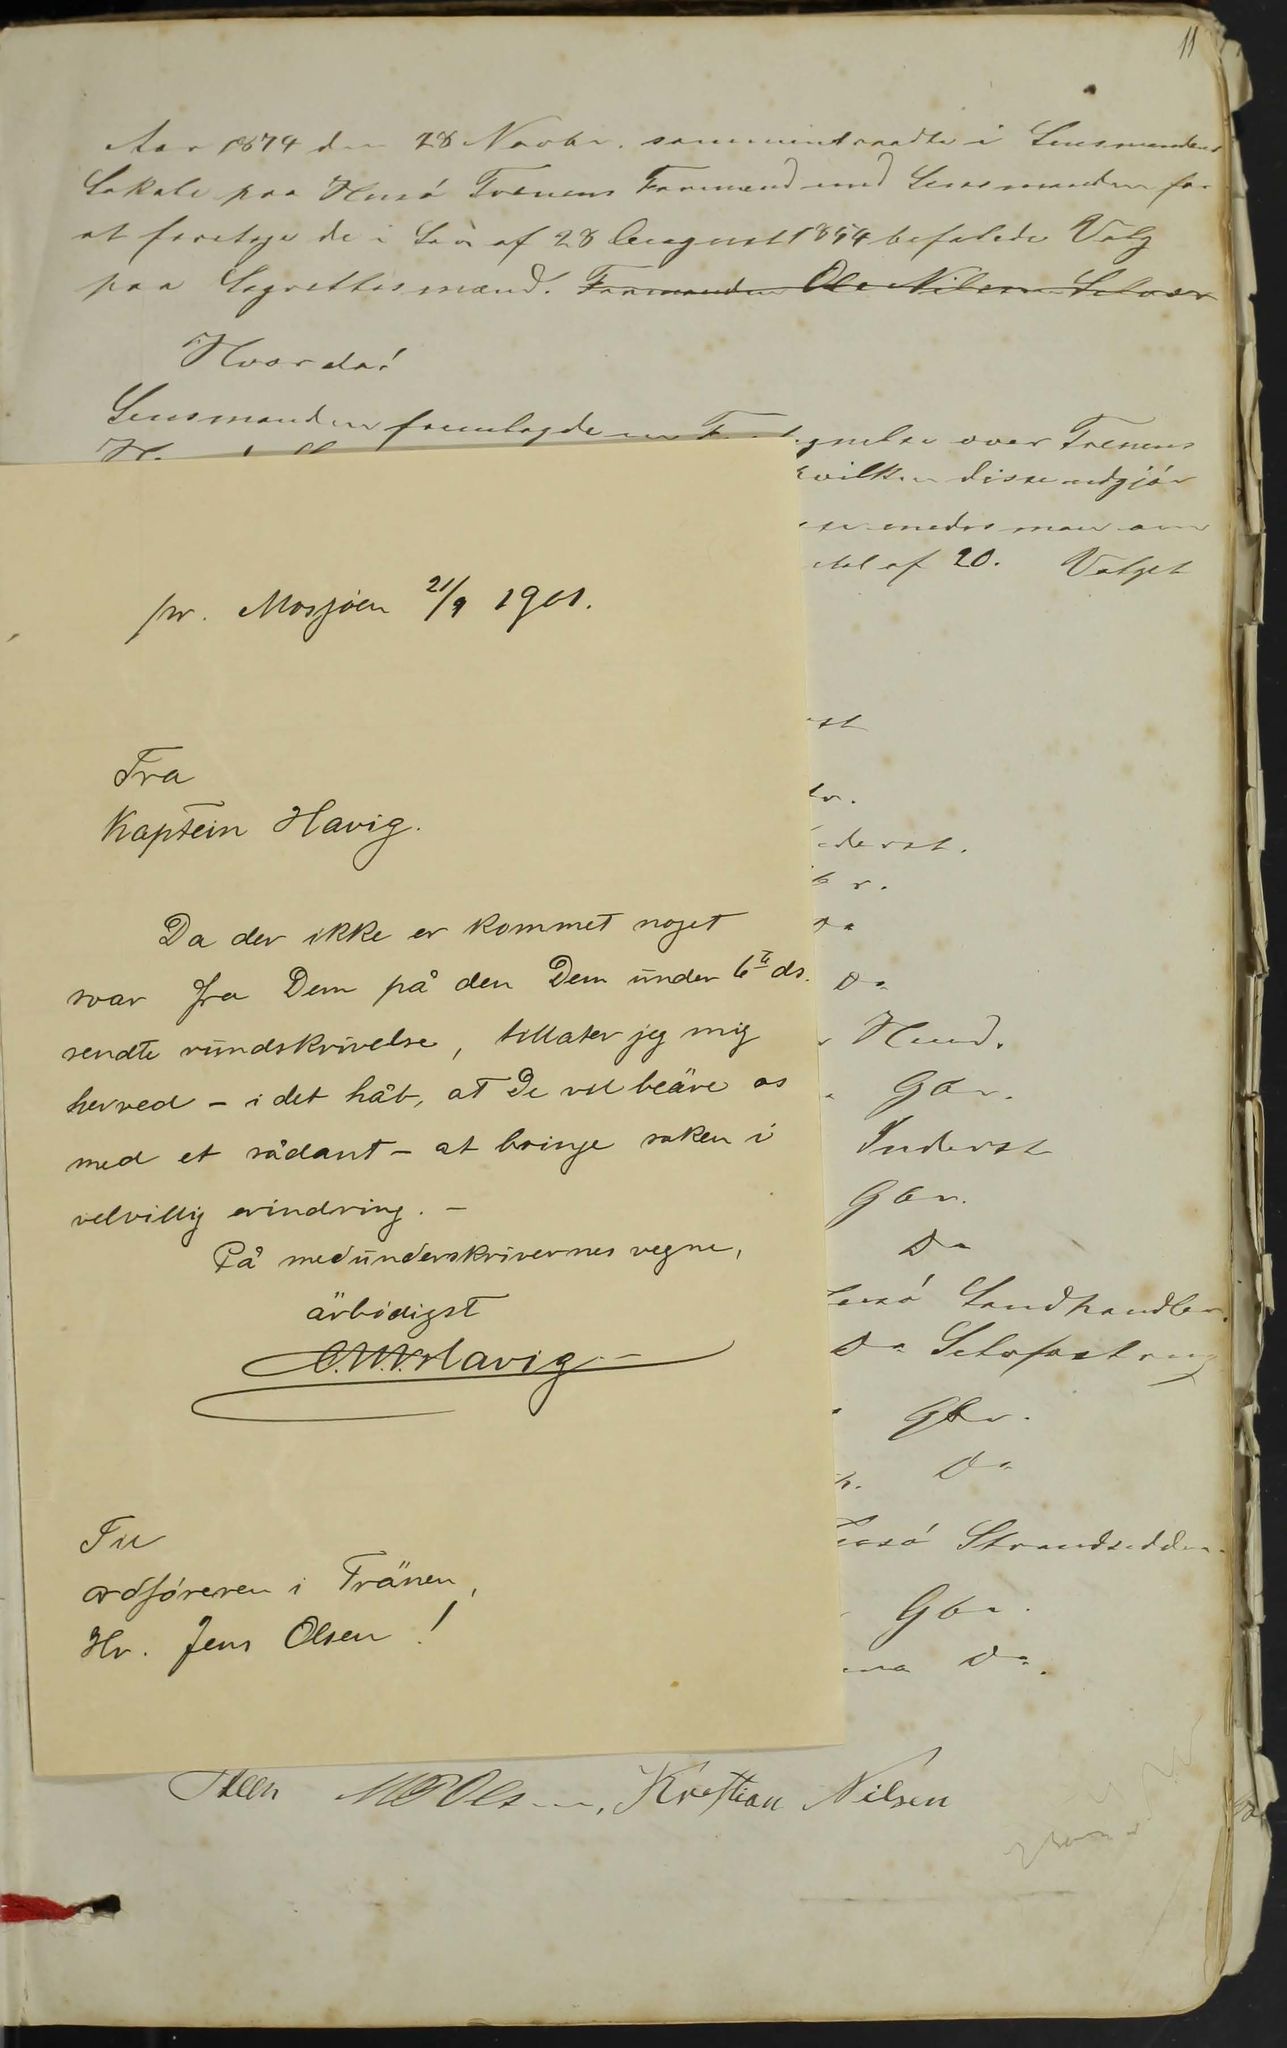 11
Aar 1874 den 28 Novbr. sammentraadte i Lensmandens
Lokale paa Husö Trænens Formænd med Lensmanden for
at foretage de i Lov af 28 August 1854 befalede Valg
paa Lagrettesmænd. Formanden Ole Nilsen Selvær
Hvorda!
Lensmanden fremlagde en over Trænens
hvilken disse udgjör
af 20. Valget
pr. Mosjöen 21/9 1901.
Fra
Kaptein Havig.
Da der ikke er kommet noget
svar fra Dem på den Dem under 6te ds.
sendte rundskrivelse, tillater jeg mig
herved - i det håb, at De vil beäre os
med et sådant - at bringe saken i
velvillig erindring. -
På medunderskrivernes vegne,
ärbödigst
Havig
Til
ordföreren i Tränen,
Hr. Jens Olsen!
Do
Huud.
Gbr.
Inderst
Gbr.
Do
Husö Landhandler
Do
Gbr.
Do
Husö Strandsidder
Gbr.
Do.
Steen Kristian Nilsen